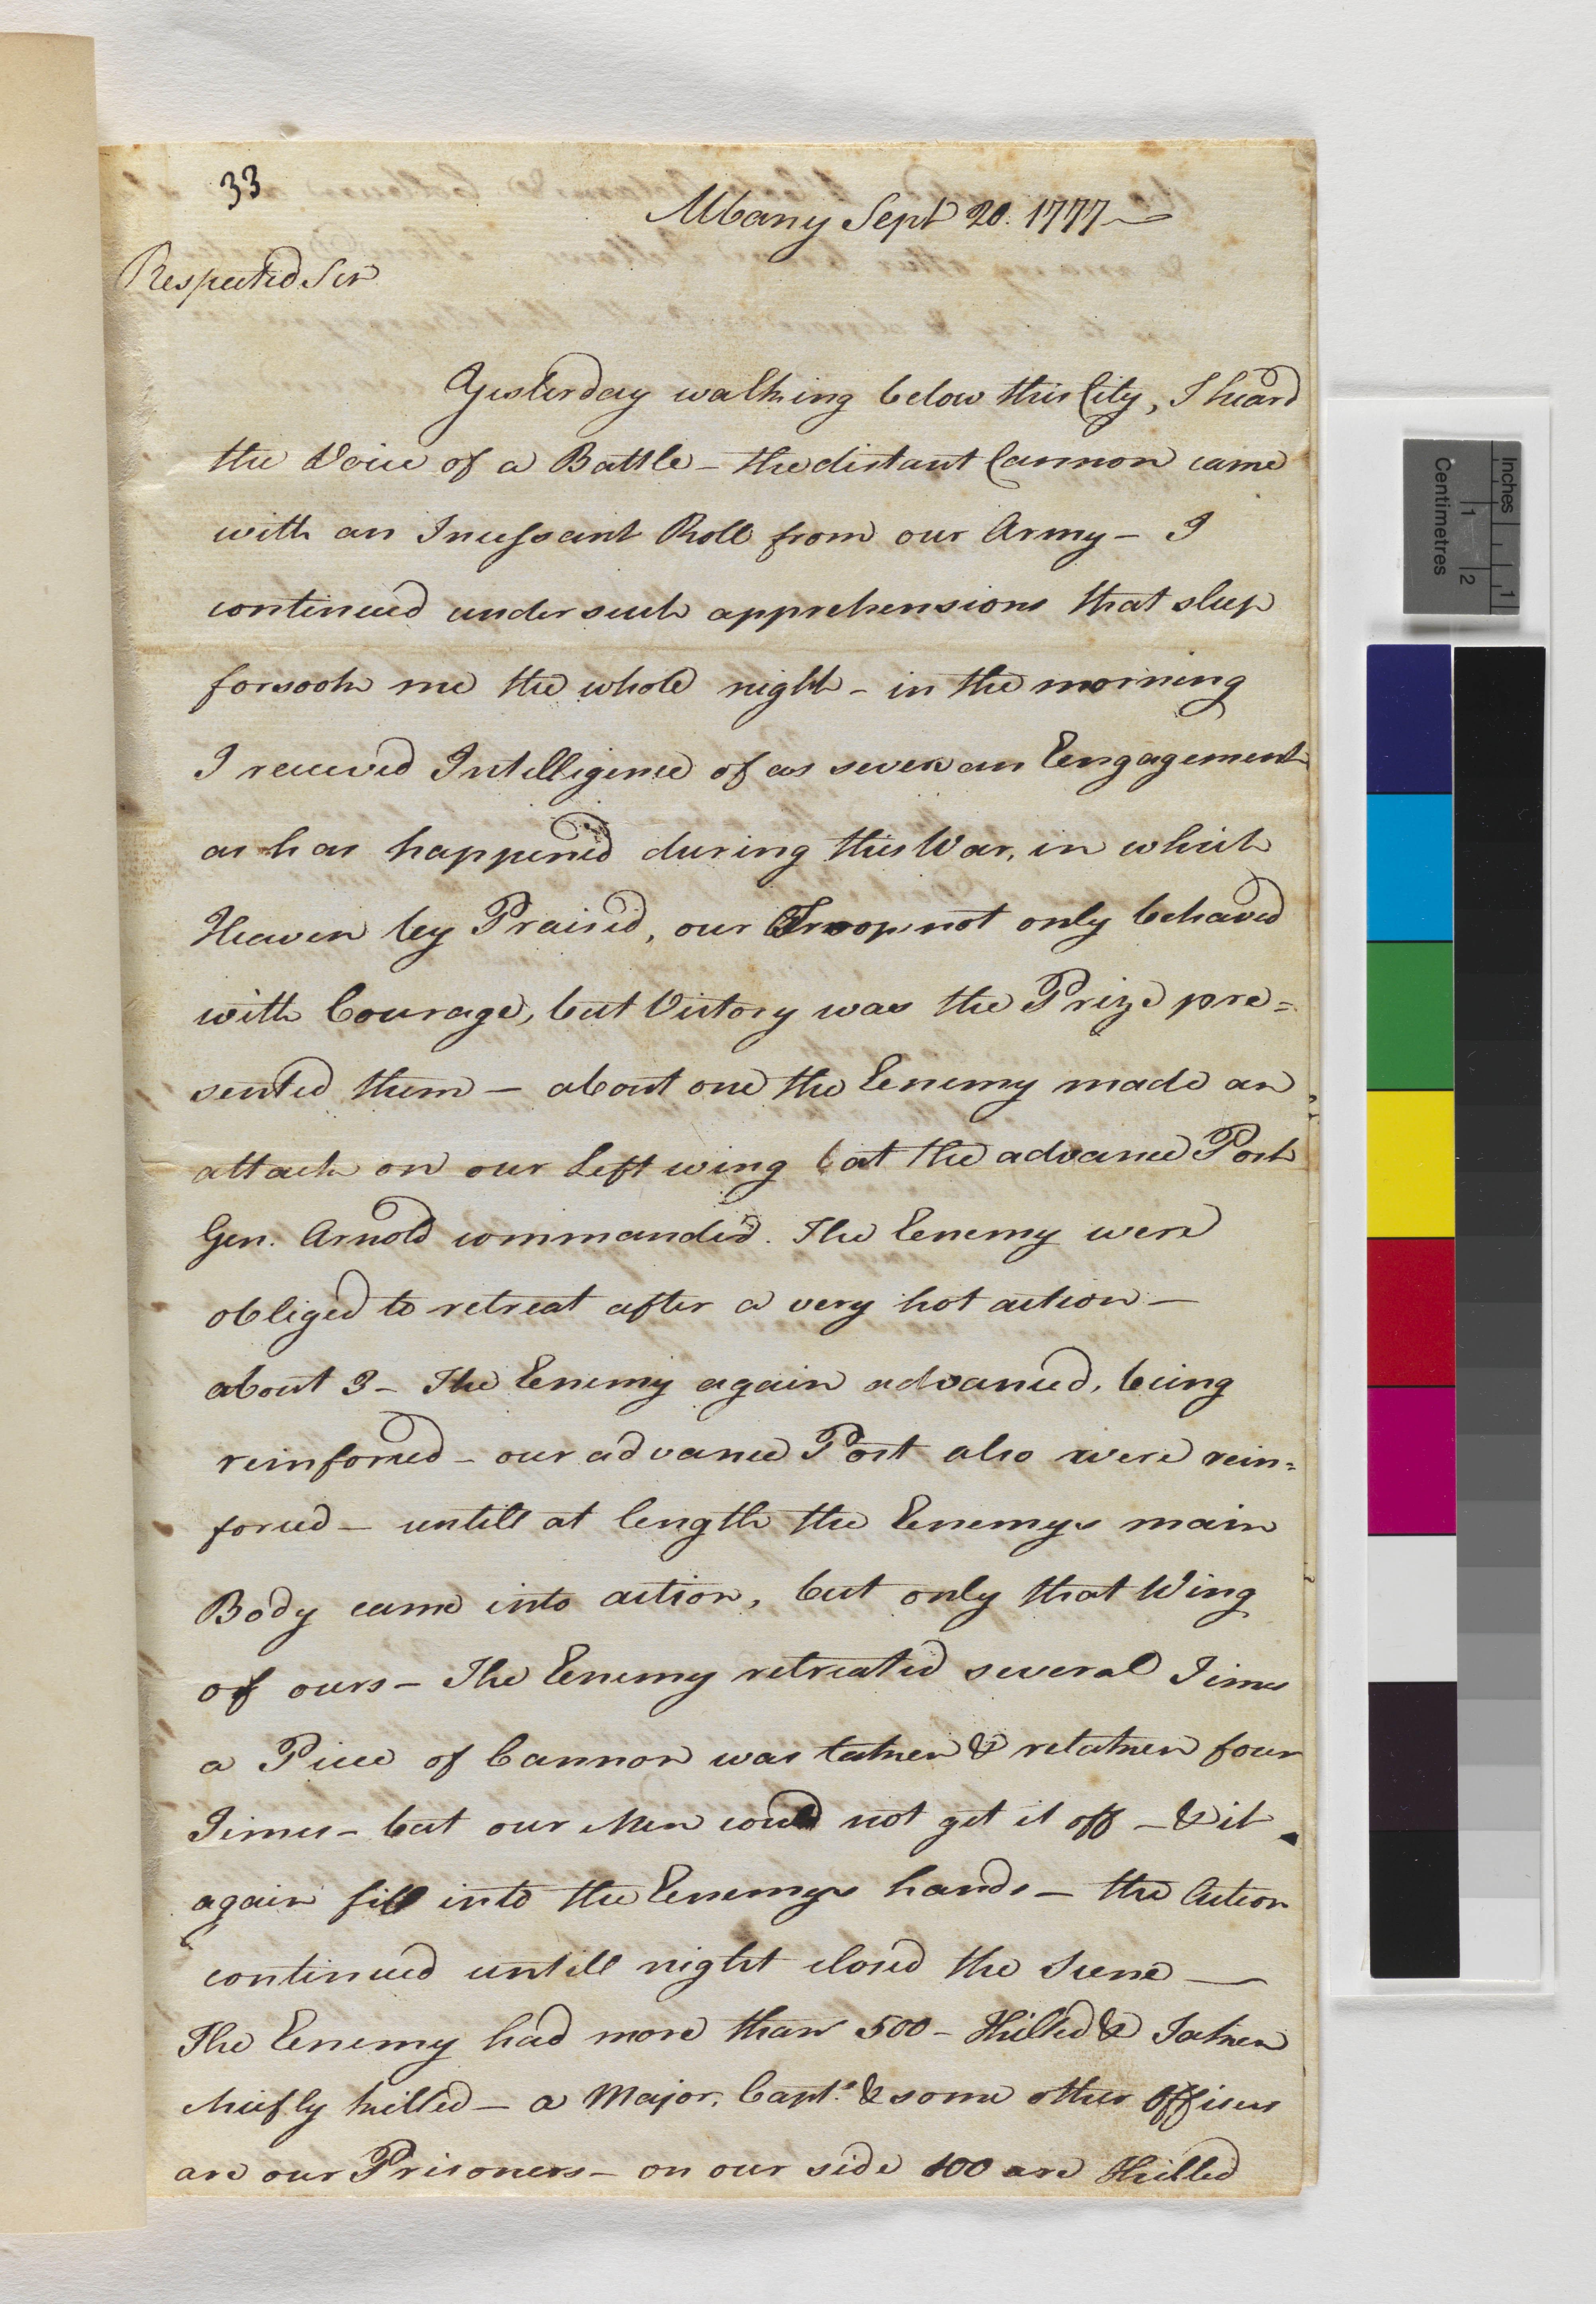 33
Albany Sept 20. 1777—
Respected Sir
Yesterday walking below this City, I heard
the Voice of a Battle – the distant Cannon came
with an Incessant Roll from our Army – I
continued under such apprehensions that sleep
forsook me the whole night – in the morning
I received Intelligence of as severe an Engagement
as has happened during this War, in which
Heaven by Praised, our Troops not only behaved
with Courage, but Victory was the Prize pre=
sented them – about one the Enemy made an
attack on our Left wing at the advance Post
Gen. Arnold commanded. The Enemy were
obliged to retreat after a very hot action –
about 3 – The Enemy again advanced, being
reinforced – our advance Post also were rein=
forced – untill at length the Enemys main
Body came into action, but only that Wing
of ours – The Enemy retreated several Times
a Piece of Cannon was taken & retaken four
Times – but our Men could not get it off – & it
again fell into the Enemys hands – the Action
continued untill night closed the Scene —
The Enemy had more than 500 – Killed & Taken
chiefly killed – a Major, Capts. & some other Officers
are our Prisoners – on our side 100 are Killed
Inches
1
Centimetres
1
2